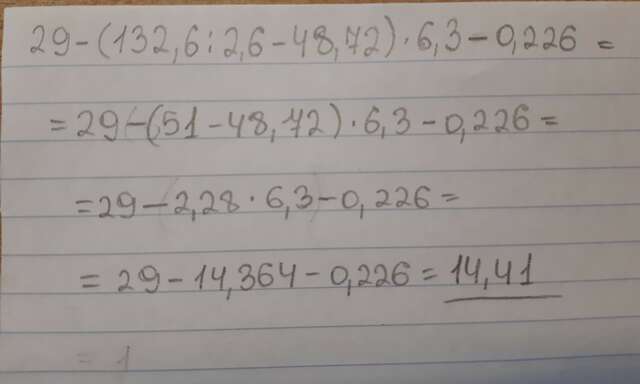 29-(132,6:2,6-48,72)·6,3-0,226=
=29-(51-48,72)·6,3-0,226=
=29-2,28·6,3-0,226=
=29-14,364-0,226=14,41
= 1